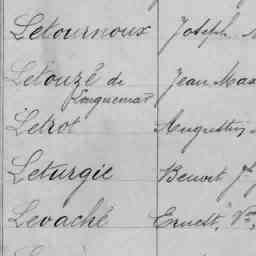 Letournoux Joseph
Letouzé de Jean Max
Longuemar
Letrot Augustin
Leturgie Benoit Jh
Levaché Ernest, Vor,